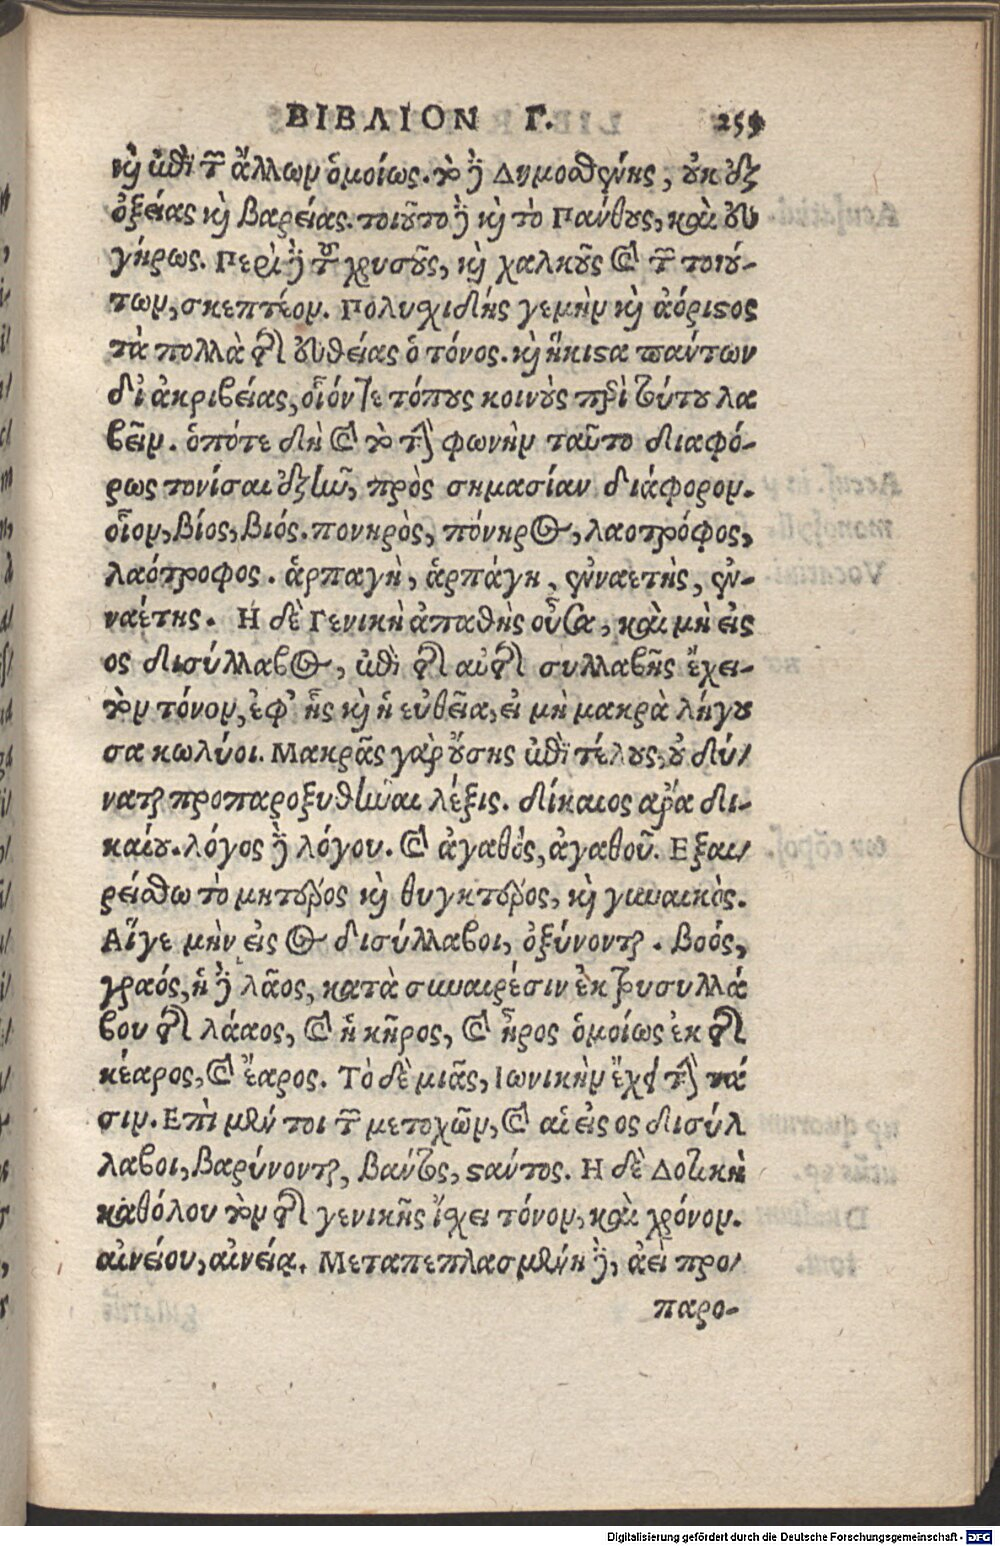 ΒΙΒΛΙΟΝ Γ. 259
καὶ ἐπὶ τῶν ἄλλων ὁμοίως. τὸ δὲ Δημοσθένης, οὐκ ἐξ
ὀξείας καὶ βαρείας. τοιοῦτο δὲ καὶ τὸ Πάνθους, καὶ εὐ
γήρως. Περὶ δὲ τοῦ χρυσοῦς, καὶ χαλκοῦς καὶ τῶν τοιού-
των, σκεπτέον. Πολυχιδὴς γεμὴν καὶ ἀόριστος
τὰ πολλὰ τῆς εὐθείας ὁ τόνος. καὶ ἥκιστα πάντων
δι ἀκριβείας, οἷόν τε τόπους κοινοὺς περὶ τούτου λα
βεῖν. ὁπότε δὴ καὶ τὸ τὴν φωνὴν ταῦτο διαφό-
ρως τονίσαι ἐξῆν, πρὸς σημασίαν διάφορον.
οἷον, βίος, βιός. πονηρὸς, πόνηρος, λαοτρόφος,
λαότροφος. ἁρπαγὴ, ἁρπάγη, ἐνναετὴς, ἐν-
ναέτης. Η δὲ Γενικὴ ἀπαθὴς οὖσα, καὶ μὴ εἰς
ος δισύλλαβος, ἐπὶ τῆς αὐτῆς συλλαβῆς ἔχει
τὸν τόνον, ἐφ' ἧς καὶ ἡ εὐθεῖα, εἰ μὴ μακρὰ λήγου
σα κωλύοι. Μακρᾶς γὰρ οὔσης ἐπὶ τέλους, οὐ δύ/
ναται προπαροξυθῆναι λέξις. δίκαιος ἄρα δι-
καίου. λόγος δὲ λόγου. καὶ ἀγαθὸς, ἀγαθοῦ. Εξαι/
ρείσθω τὸ μητέρος καὶ θυγητέρος, καὶ γυναικὸς.
Αἵγε μὴν εἰς ος δισύλλαβοι, ὀξύνονται. βοός,
γραός, ἡ δὲ λᾶος, κατὰ συναιρέσιν ἐκ τρισυλλά
βου τῆς λάαος, καὶ ἡ κῆρος, καὶ ἦρος ὁμοίως ἐκ τῆς
κέαρος, καὶ ἔαρος. Τὸ δὲ μιᾶς, Ιωνικὴν ἔχει τὴν τά
σιν. Επὶ μέν τοι τῶν μετοχῶν, καὶ αἱ εἰς ος δισύλ
λαβοι, βαρύνονται, βαύτος, σταύτος. Η δὲ Δοτικὴ
καθόλου τὸν τῆς γενικῆς ἴχει τόνον, καὶ χρόνον.
αἰνείου, αἰνείᾳ. Μεταπεπλασμένη δὲ, ἀεὶ προ/
παρο-
Digitalisierung gefördert durch die Deutsche Forschungsgemeinschaft - DFG